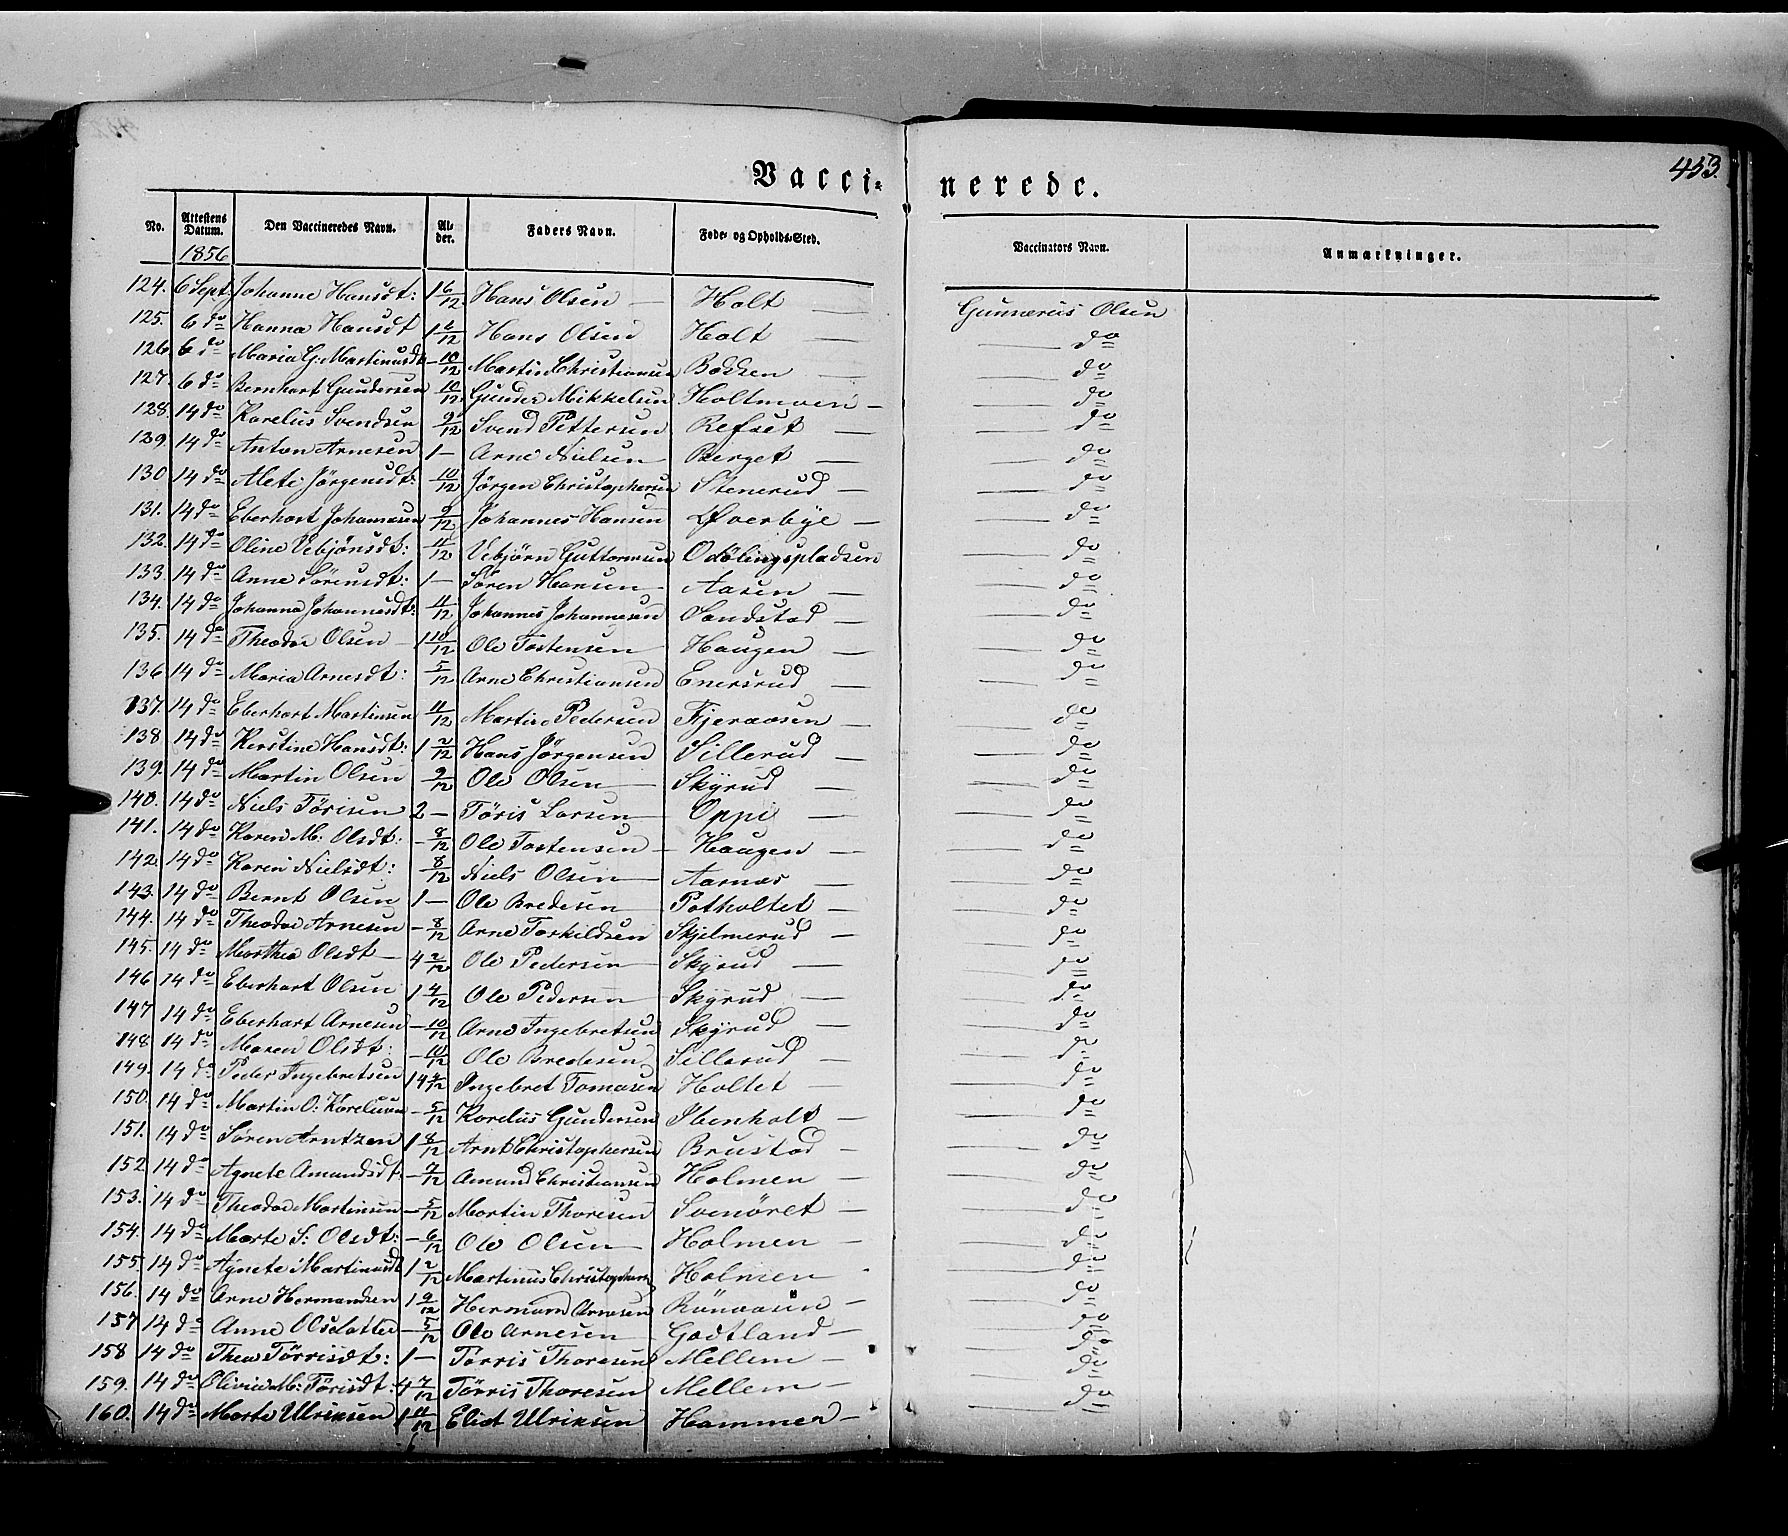 453.
Vacci- nerede.
No. Attestens Datum. Den Vaccineredes Navn. Al- der. Faders Navn. Føde- og Opholds-Sted. Vaccinators Navn. Anmærkninger.
1856
124. 6 Sept. Johanne Hansdt: 1 6/12 Hans Olsen — Holt — Gunnerius Olsen
125. 6 do Hanna Hansdt 1 6/12 Hans Olsen Holt — do
126. 6 do Maria G: Martinusdt — 10/12 Martin Christiansen Bodsen — do
127. 6 do Bernhart Gundersen 10/12 Gunder Mikkelsen Holtmoen — do
128. 14 do Karelius Svendsen 9/12 Svend Pettersen Refset — do
129. 14 do Anton Arnesen 1 — Arne Nielsen Berget — do
130 14 do Alete Jörgensdt: 10/12 Jörgen Christophersen Stenerud — do
131. 14 do Eberhart Johannesen 9/12 Johannes Hansen Øverbye — do
132. 14 do Oline Vebjönsdt: 11/12 Vebjörn Guttormsen Ødölingspladsen do
133. 14 do Anne Sörensdt: 1 — Sören Hansen — Aasen — do
134. 14 do Johanna Johannesdt: 11/12 Johannes Johannesen Sandstad — do
135. 14 do Theodor Olsen — 1 10/12 Ole Tostensen Haugen — do
136 14 do Maria Arnesdt: 5/12 Arne Christiansen Enersrud — do
137. 14 do Eberhart Martinsen 11/12 Martin Pedersen Fjeraasen — do
138 14 do Kerstine Hansdt: 1 2/12 Hans Jörgensen Sillerud — do
139. 14 do Martin Olsen 9/12 Ole Olsen — Skyrud — do
140. 14 do Niels Törisen 2 — Töris Larsen Oppi — do
141. 14 do Karen M: Olsdt: — 8/12 Ole Tostensen — Haugen — do
142. 14 do Karen Nielsdt: 8/12 Niels Olsen — Aarnæs — do
143. 14 do Bernt Olsen 1 — Ole Bredesen Potholtet — do
144. 14 do Theodor Arnesen — 8/12 Arne Torkildsen Skjelmerud — do
145. 14 do Marthea Olsdt — 4 2/12 Ole Pedersen Skyrud — do
146 14 do Eberhart Olsen 1 4/12 Ole Pedersen Skyrud — do
147 14 do Eberhart Arnesen — 10/12 Arne Ingebretsen Skyrud — do
148 14 do Maren Olsdt: — 10/12 Ole Bredesen Sillerud — do
149. 14 do Peder Ingebretsen 1 4/12 Ingebret Tomasen Holtet — do
150. 14 do Martin O: Karelusen — 5/12 Karelius Gundersen Ibenholt — do
151. 14 do Sören Arntzen 1 8/12 Arnt Christophersen Brustad — do
152 14 do Agnete Amundsdt: — 7/12 Amund Christiansen Holmen — do
153. 14 do Theodor Martinsen — 5/12 Martin Thoresen Svenöret — do
154. 14 do Marte S: Olsdt: — 6/12 Ole Olsen — Holmen — do
155. 14 do Agnete Martinusdt 1 2/12 Martinus Christophers Holmen do
156. 14 do Arne Hermandsen 1 9/12 Hermand Arnesen Rönaasen — do
157 14 do Anne Olsdatter — 5/12 Ole Arnesen Godtland — do
158 14 do Thea Törrisdt: 1 — Törris Thoresen Mellem — do
159. 14 do Olivia M: Törisdt: 4 7/12 Törris Thoresen Mellem — do
160. 14 do Marte Ulriksen 1 11/12 Eliot Ulriksen Hammer — do